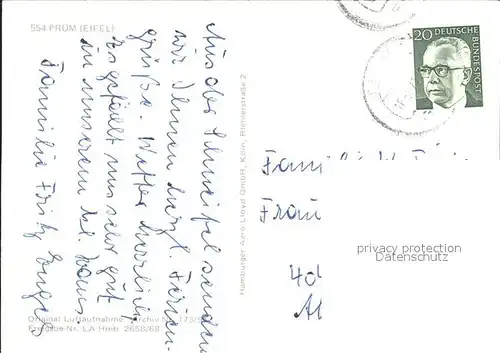 554 PRÜM (EIFEL)
Aus der Schneifel senden
wir Ihnen herzl. Ferien-
grüße. Wetter herrlich
es gefällt uns sehr gut
in unserem kl. Haus.
Familie Fritz
Hamburger Aero Lloyd GmbH, Köln, Riehlerstraße 2
Original Luftaufnahme Archiv Nr. 173/
Freigabe-Nr. LA Hmb. 2658/68
20 DEUTSCHE
BUNDESPOST
Frau
40
privacy protection
Datenschutz